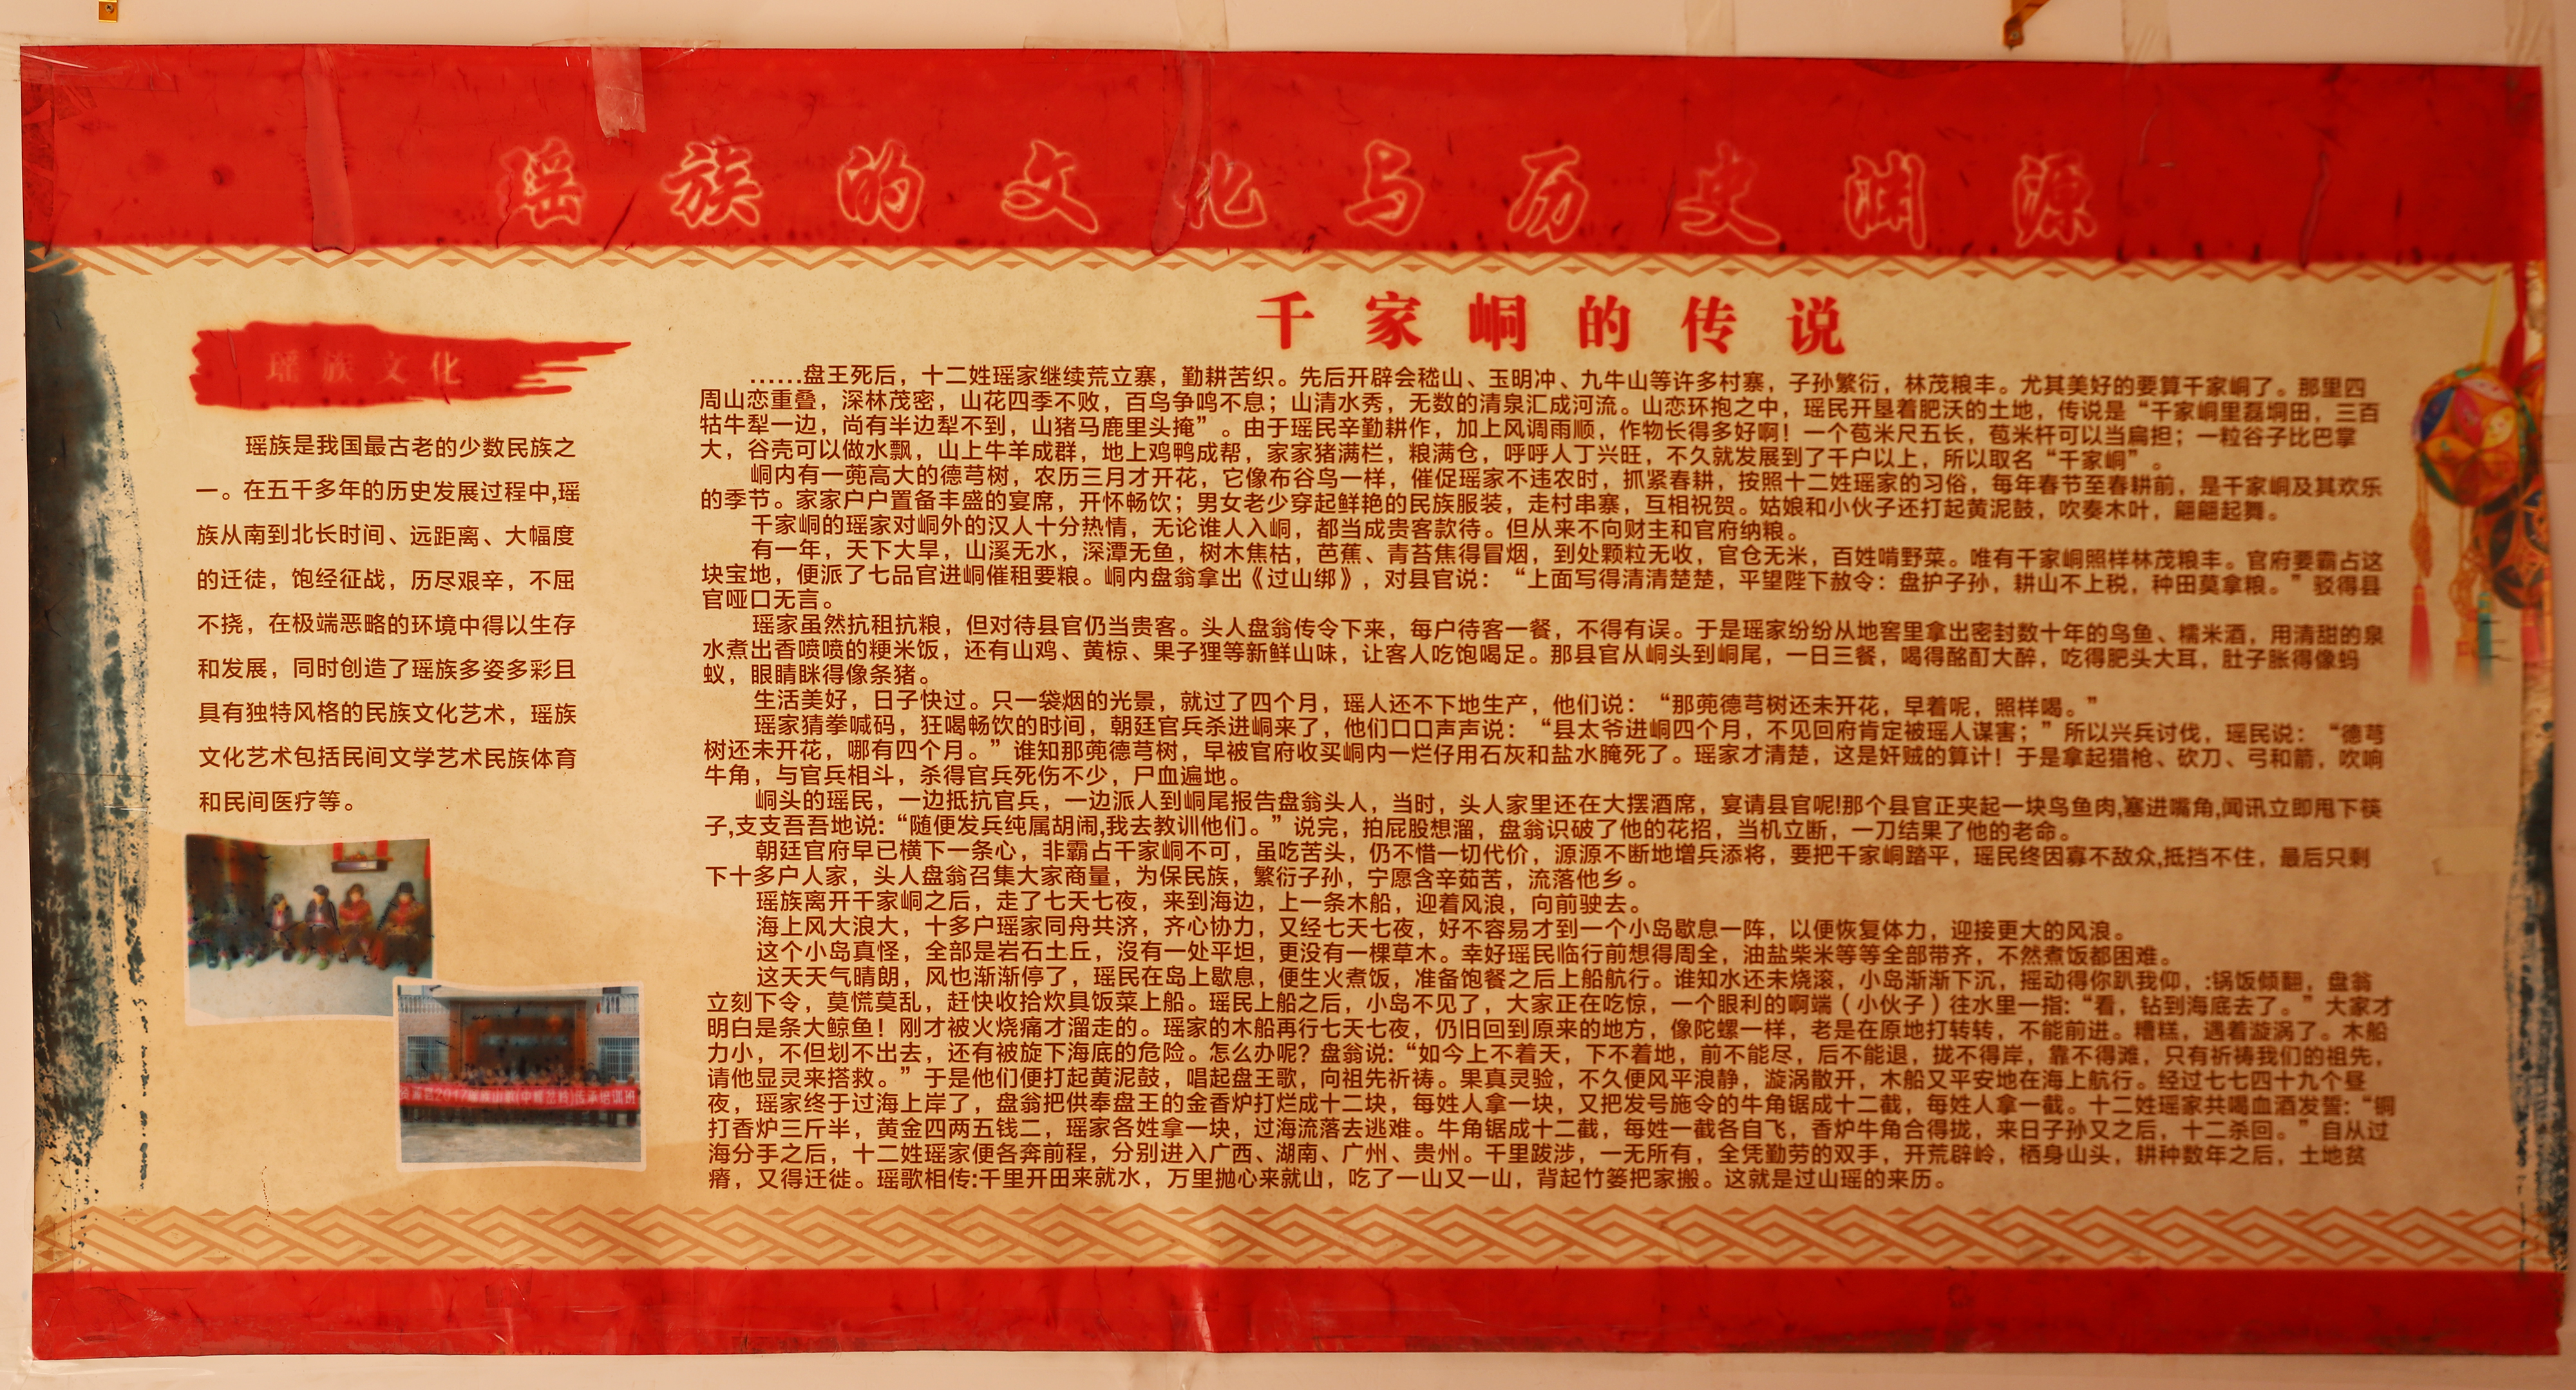 瑶族的文化与历史渊源
瑶族文化
瑶族是我国最古老的少数民族之
一。在五千多年的历史发展过程中,瑶
族从南到北长时间、远距离、大幅度
的迁徒，饱经征战，历尽艰辛，不屈
不挠，在极端恶略的环境中得以生存
和发展，同时创造了瑶族多姿多彩且
具有独特风格的民族文化艺术，瑶族
文化艺术包括民间文学艺术民族体育
和民间医疗等。
千家峒的传说
……盘王死后，十二姓瑶家继续荒立寨，勤耕苦织。先后开辟会嵇山、玉明冲、九牛山等许多村寨，子孙繁衍，林茂粮丰。尤其美好的要算千家峒了。那里四
周山恋重叠，深林茂密，山花四季不败，百鸟争鸣不息；山清水秀，无数的清泉汇成河流。山恋环抱之中，瑶民开垦着肥沃的土地，传说是“千家峒里磊垌田，三百
牯牛犁一边，尚有半边犁不到，山猪马鹿里头掩”。由于瑶民辛勤耕作，加上风调雨顺，作物长得多好啊！一个苞米尺五长，苞米杆可以当扁担；一粒谷子比巴掌
大，谷壳可以做水瓢，山上牛羊成群，地上鸡鸭成帮，家家猪满栏，粮满仓，呼呼人丁兴旺，不久就发展到了千户以上，所以取名“千家峒”。
峒内有一蔸高大的德芎树，农历三月才开花，它像布谷鸟一样，催促瑶家不违农时，抓紧春耕，按照十二姓瑶家的习俗，每年春节至春耕前，是千家峒及其欢乐
的季节。家家户户置备丰盛的宴席，开怀畅饮；男女老少穿起鲜艳的民族服装，走村串寨，互相祝贺。姑娘和小伙子还打起黄泥鼓，吹奏木叶，翩翩起舞。
千家峒的瑶家对峒外的汉人十分热情，无论谁人入峒，都当成贵客款待。但从来不向财主和官府纳粮。
有一年，天下大旱，山溪无水，深潭无鱼，树木焦枯，芭蕉、青苔焦得冒烟，到处颗粒无收，官仓无米，百姓啃野菜。唯有千家峒照样林茂粮丰。官府要霸占这
块宝地，便派了七品官进峒催租要粮。峒内盘翁拿出《过山绑》，对县官说：“上面写得清清楚楚，平望陛下赦令：盘护子孙，耕山不上税，种田莫拿粮。”驳得县
官哑口无言。
瑶家虽然抗租抗粮，但对待县官仍当贵客。头人盘翁传令下来，每户待客一餐，不得有误。于是瑶家纷纷从地窖里拿出密封数十年的鸟鱼、糯米酒，用清甜的泉
水煮出香喷喷的粳米饭，还有山鸡、黄椋、果子狸等新鲜山味，让客人吃饱喝足。那县官从峒头到峒尾，一日三餐，喝得酩酊大醉，吃得肥头大耳，肚子胀得像蚂
蚁，眼睛眯得像条猪。
生活美好，日子快过。只一袋烟的光景，就过了四个月，瑶人还不下地生产，他们说：“那蔸德芎树还未开花，早着呢，照样喝。”
瑶家猜拳喊码，狂喝畅饮的时间，朝廷官兵杀进峒来了，他们口口声声说：“县太爷进峒四个月，不见回府肯定被瑶人谋害；”所以兴兵讨伐，瑶民说：“德芎
树还未开花，哪有四个月。”谁知那蔸德芎树，早被官府收买峒内一烂仔用石灰和盐水腌死了。瑶家才清楚，这是奸贼的算计！于是拿起猎枪、砍刀、弓和箭，吹响
牛角，与官兵相斗，杀得官兵死伤不少，尸血遍地。
峒头的瑶民，一边抵抗官兵，一边派人到峒尾报告盘翁头人，当时，头人家里还在大摆酒席，宴请县官呢!那个县官正夹起一块鸟鱼肉,塞进嘴角,闻讯立即甩下筷
子,支支吾吾地说:“随便发兵纯属胡闹,我去教训他们。”说完，拍屁股想溜，盘翁识破了他的花招，当机立断，一刀结果了他的老命。
朝廷官府早已横下一条心，非霸占千家峒不可，虽吃苦头，仍不惜一切代价，源源不断地增兵添将，要把千家峒踏平，瑶民终因寡不敌众,抵挡不住，最后只剩
下十多户人家，头人盘翁召集大家商量，为保民族，繁衍子孙，宁愿含辛茹苦，流落他乡。
瑶族离开千家峒之后，走了七天七夜，来到海边，上一条木船，迎着风浪，向前驶去。
海上风大浪大，十多户瑶家同舟共济，齐心协力，又经七天七夜，好不容易才到一个小岛歇息一阵，以便恢复体力，迎接更大的风浪。
这个小岛真怪，全部是岩石土丘，沒有一处平坦，更没有一棵草木。幸好瑶民临行前想得周全，油盐柴米等等全部带齐，不然煮饭都困难。
这天天气晴朗，风也渐渐停了，瑶民在岛上歇息，便生火煮饭，准备饱餐之后上船航行。谁知水还未烧滚，小岛渐渐下沉，摇动得你趴我仰，:锅饭倾翻，盘翁
立刻下令，莫慌莫乱，赶快收拾炊具饭菜上船。瑶民上船之后，小岛不见了，大家正在吃惊，一个眼利的啊端（小伙子）往水里一指:“看，钻到海底去了。”大家才
明白是条大鲸鱼！刚才被火烧痛才溜走的。瑶家的木船再行七天七夜，仍旧回到原来的地方，像陀螺一样，老是在原地打转转，不能前进。糟糕，遇着漩涡了。木船
力小，不但划不出去，还有被旋下海底的危险。怎么办呢？盘翁说:“如今上不着天，下不着地，前不能尽，后不能退，拢不得岸，靠不得滩，只有祈祷我们的祖先，
请他显灵来搭救。”于是他们便打起黄泥鼓，唱起盘王歌，向祖先祈祷。果真灵验，不久便风平浪静，漩涡散开，木船又平安地在海上航行。经过七七四十九个昼
夜，瑶家终于过海上岸了，盘翁把供奉盘王的金香炉打烂成十二块，每姓人拿一块，又把发号施令的牛角锯成十二截，每姓人拿一截。十二姓瑶家共喝血酒发誓:“铜
打香炉三斤半，黄金四两五钱二，瑶家各姓拿一块，过海流落去逃难。牛角锯成十二截，每姓一截各自飞，香炉牛角合得拢，来日子孙又之后，十二杀回。”自从过
海分手之后，十二姓瑶家便各奔前程，分别进入广西、湖南、广州、贵州。千里跋涉，一无所有，全凭勤劳的双手，开荒辟岭，栖身山头，耕种数年之后，土地贫
瘠，又得迁徙。瑶歌相传:千里开田来就水，万里抛心来就山，吃了一山又一山，背起竹篓把家搬。这就是过山瑶的来历。
2017瑶族山歌(中峰岔岭)传承培训班